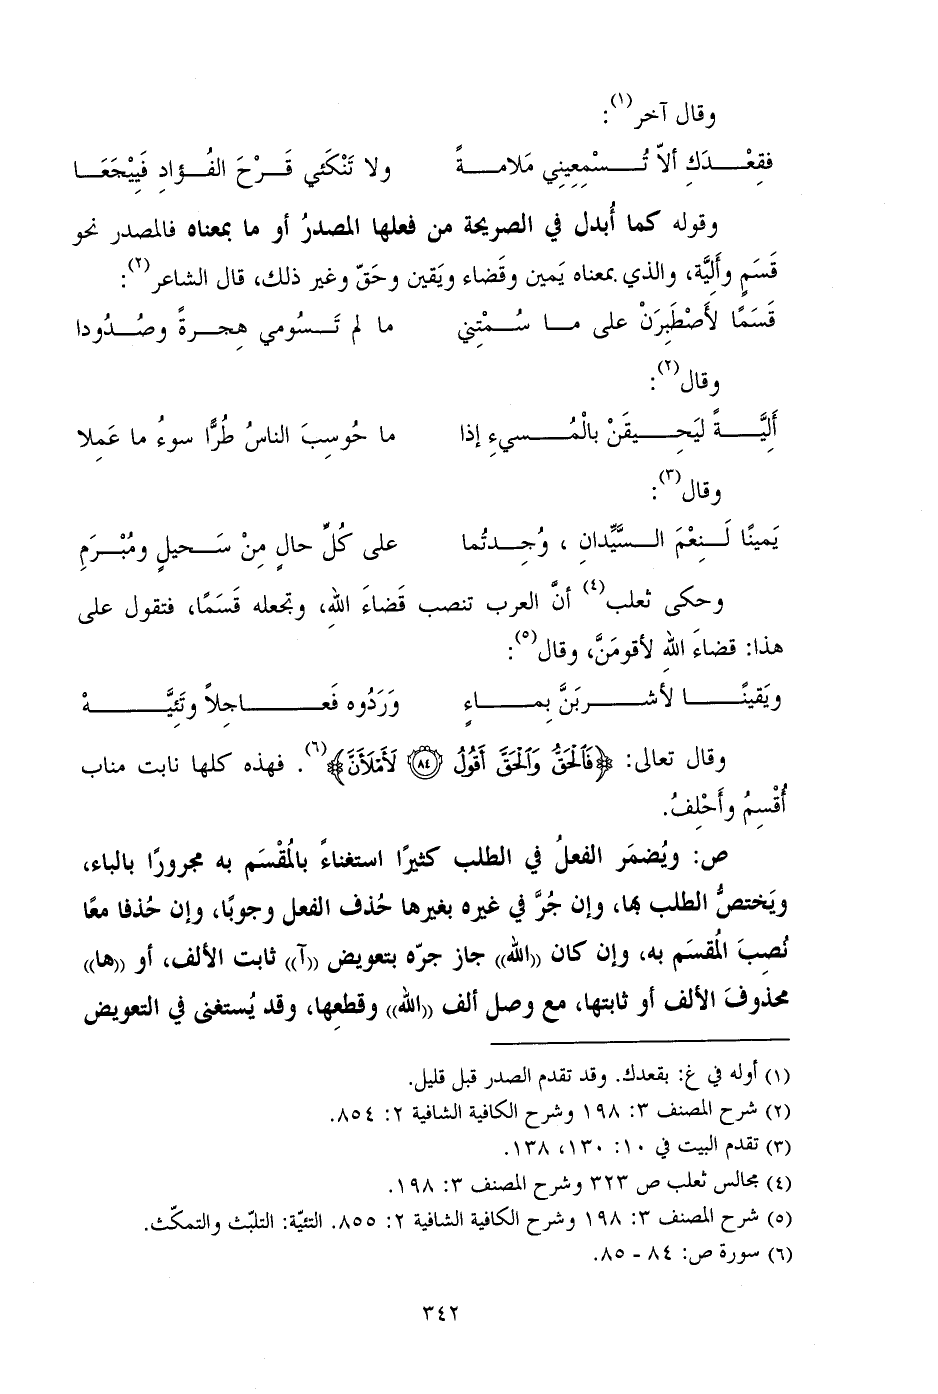 وقال آخر(١):
فقِعْـدَكِ ألاّ تُـسْمِعِينِي مَلامـةً ولا تَنْكَئي قَـرْحَ الفُـؤادِ فَيِيْجَعَـا
وقوله كما أُبدل في الصريحة من فعلها المصدرُ أو ما بمعناه فالمصدر نحو
قَسَمٍ وأَلِيَّة، والذي بمعناه يَمين وقَضاء ويَقين وحَقّ وغير ذلك، قال الشاعر(٢):
قَسَمًا لأَصْطَبِرَنْ على مـا سُـمْتِني ما لم تَـسُومي هِجرةً وصُـدُودا
وقال(٢):
أَلِيَّـةً لَيَحِـيقَنْ بالْمُـسيءِ إذا ما حُوسِبَ الناسُ طُرًّا سوءُ ما عَمِلا
وقال(٣):
يَمينًا لَـنِعْمَ الـسَّيِّدانِ ، وُجِـدتُما على كُلِّ حالٍ مِنْ سَـحيلٍ ومُبْـرَمِ
وحكى ثعلب(٤) أنَّ العرب تنصب قَضاءَ اللهِ، وتجعله قَسَمًا، فتقول على
هذا: قضاءَ اللهِ لأقومَنَّ، وقال(٥):
ويَقينًـا لأشـربَنَّ بِمـاءٍ وَرَدُوه فَعـاجِلاً وتَئِيَّـهْ
وقال تعالى: ﴿فَٱلْحَقُّ وَٱلْحَقَّ أَقُولُ ۝٨٤ لَأَمْلَأَنَّ﴾(٦). فهذه كلها نابت مناب
أُقْسِمُ وأَحْلِفُ.
ص: ويُضمَر الفعلُ في الطلب كثيرًا استغناءً بالمُقْسَم به مجرورًا بالباء،
ويَختصُّ الطلب بها، وإن جُرَّ في غيره بغيرها حُذف الفعل وجوبًا، وإن حُذفا معًا
نُصِبَ المُقسَم به، وإن كان ((الله)) جاز جرّه بتعويض ((آ)) ثابت الألف، أو ((ها))
محذوفَ الألف أو ثابتها، مع وصل ألف ((الله)) وقطعِها، وقد يُستغنى في التعويض
(١) أوله في غ: بقعدك. وقد تقدم الصدر قبل قليل.
(٢) شرح المصنف ٣: ١٩٨ وشرح الكافية الشافية ٢: ٨٥٤.
(٣) تقدم البيت في ١٠: ١٣٠، ١٣٨.
(٤) مجالس ثعلب ص ٣٢٣ وشرح المصنف ٣: ١٩٨.
(٥) شرح المصنف ٣: ١٩٨ وشرح الكافية الشافية ٢: ٨٥٥. التئيّة: التلبّث والتمكّث.
(٦) سورة ص: ٨٤ - ٨٥.
٣٤٢